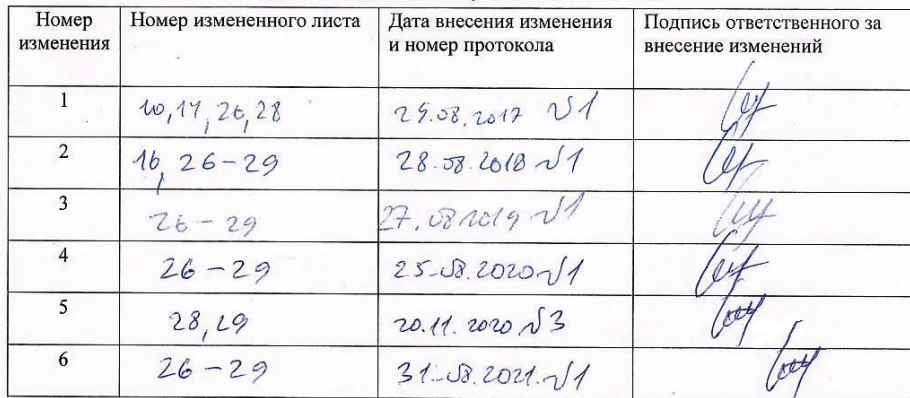 Номер изменения | Номер измененного листа | Дата внесения изменения и номер протокола | Подпись ответственного за внесение изменений
1 | 10, 17, 26, 28 | 29.08.2017 №1
2 | 16, 26-29 | 28.08.2018 №1
3 | 26-29 | 27.08.2019 №1
4 | 26-29 | 25.08.2020 №1
5 | 28, 29 | 20.11.2020 №3
6 | 26-29 | 31.08.2021. №1